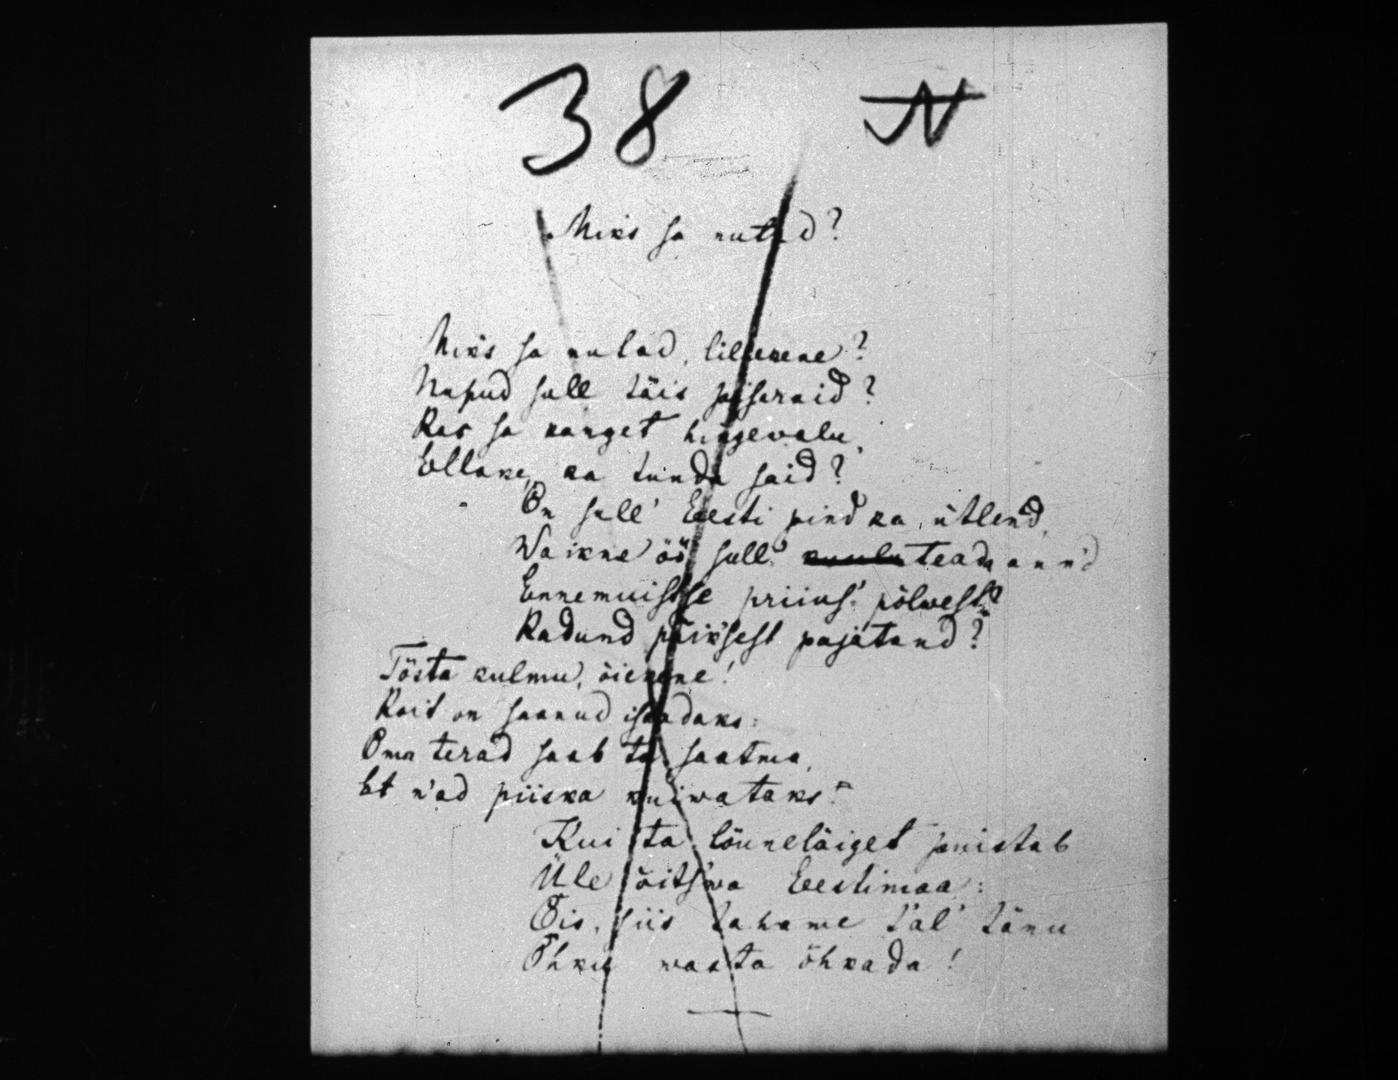 38 N
Miks sa nutad?
Miks sa nutad, lillekene?
Nupud sull täis pisaraid?
Kas sa kanget hingevalu,
Ellake, ka tunda said?
On sull' Eesti pind ka ütlend,
Waikne öö sull' teada annd
Ennemuistse priius' põlwest?
Kadund päiksest pajatand?
Tõsta kulmu, õiekene!
Koit on saanud isandaks:
Oma terad saab ta saatma,
Et n'ad piiska kuiwataks!
Kui ta lõuneläiget puistab
Üle õitswa Eestimaa:
Õis, siis tahame tal' tänu
Õhku wasta õhkada!